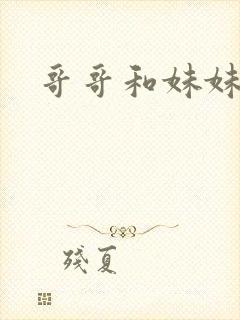 哥哥和妹妹
残夏